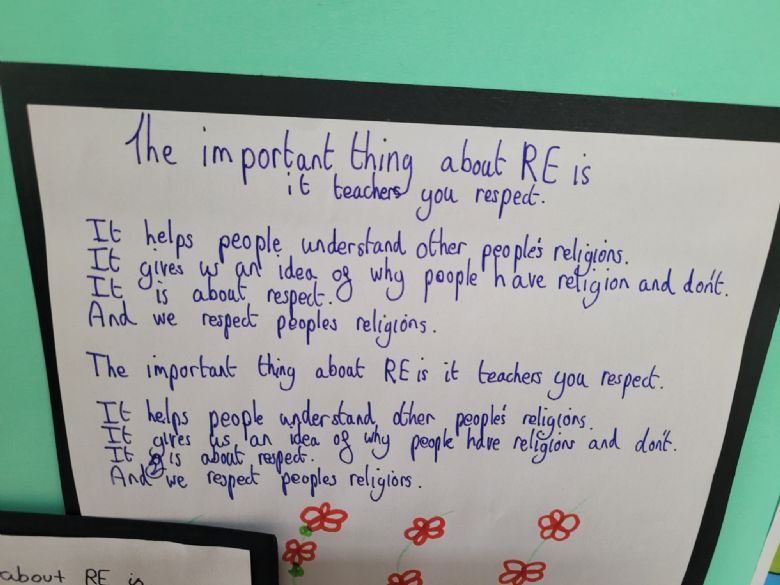 The important thing about RE is
it teachers you respect.
It helps people understand other people's religions.
It gives us an idea of why people have religion and don't.
It is about respect.
And we respect peoples religions.
The important thing about RE is it teachers you respect.
It helps people understand other people's religions.
It gives us an idea of why people have religions and don't.
It is about respect.
And we respect peoples religions.
about RE is